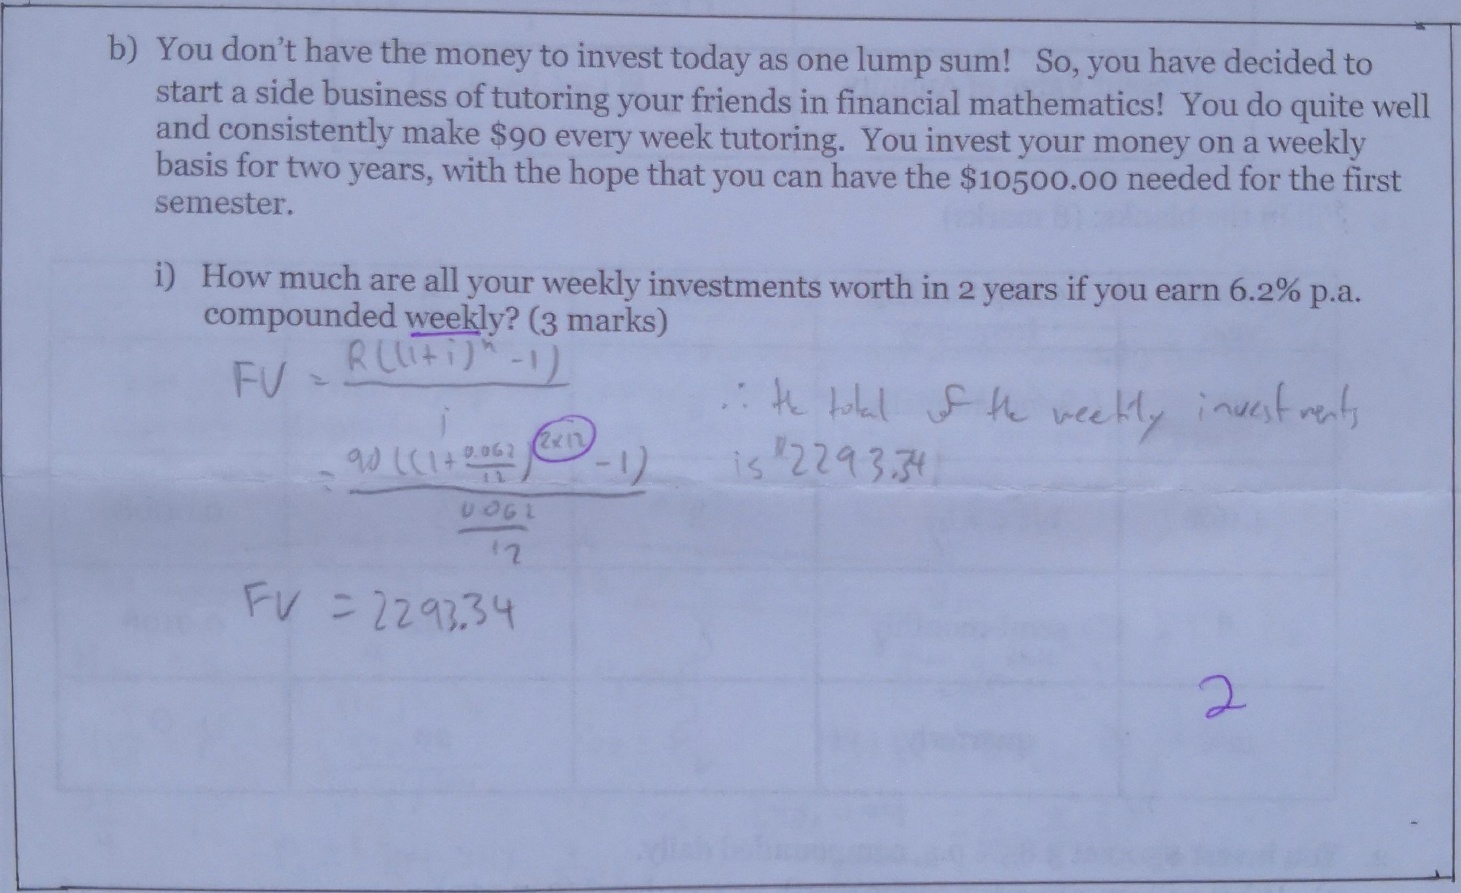 b) You don't have the money to invest today as one lump sum! So, you have decided to
start a side business of tutoring your friends in financial mathematics! You do quite well
and consistently make $90 every week tutoring. You invest your money on a weekly
basis for two years, with the hope that you can have the $10500.00 needed for the first
semester.
i) How much are all your weekly investments worth in 2 years if you earn 6.2% p.a.
compounded weekly? (3 marks)
FV = R((1+i)ⁿ -1)
i
= 90((1+ 0.062/12)^(2×12) -1)
0.062
12
FV = 2293.34
∴ the total of the weekly investments
is $2293.34
2